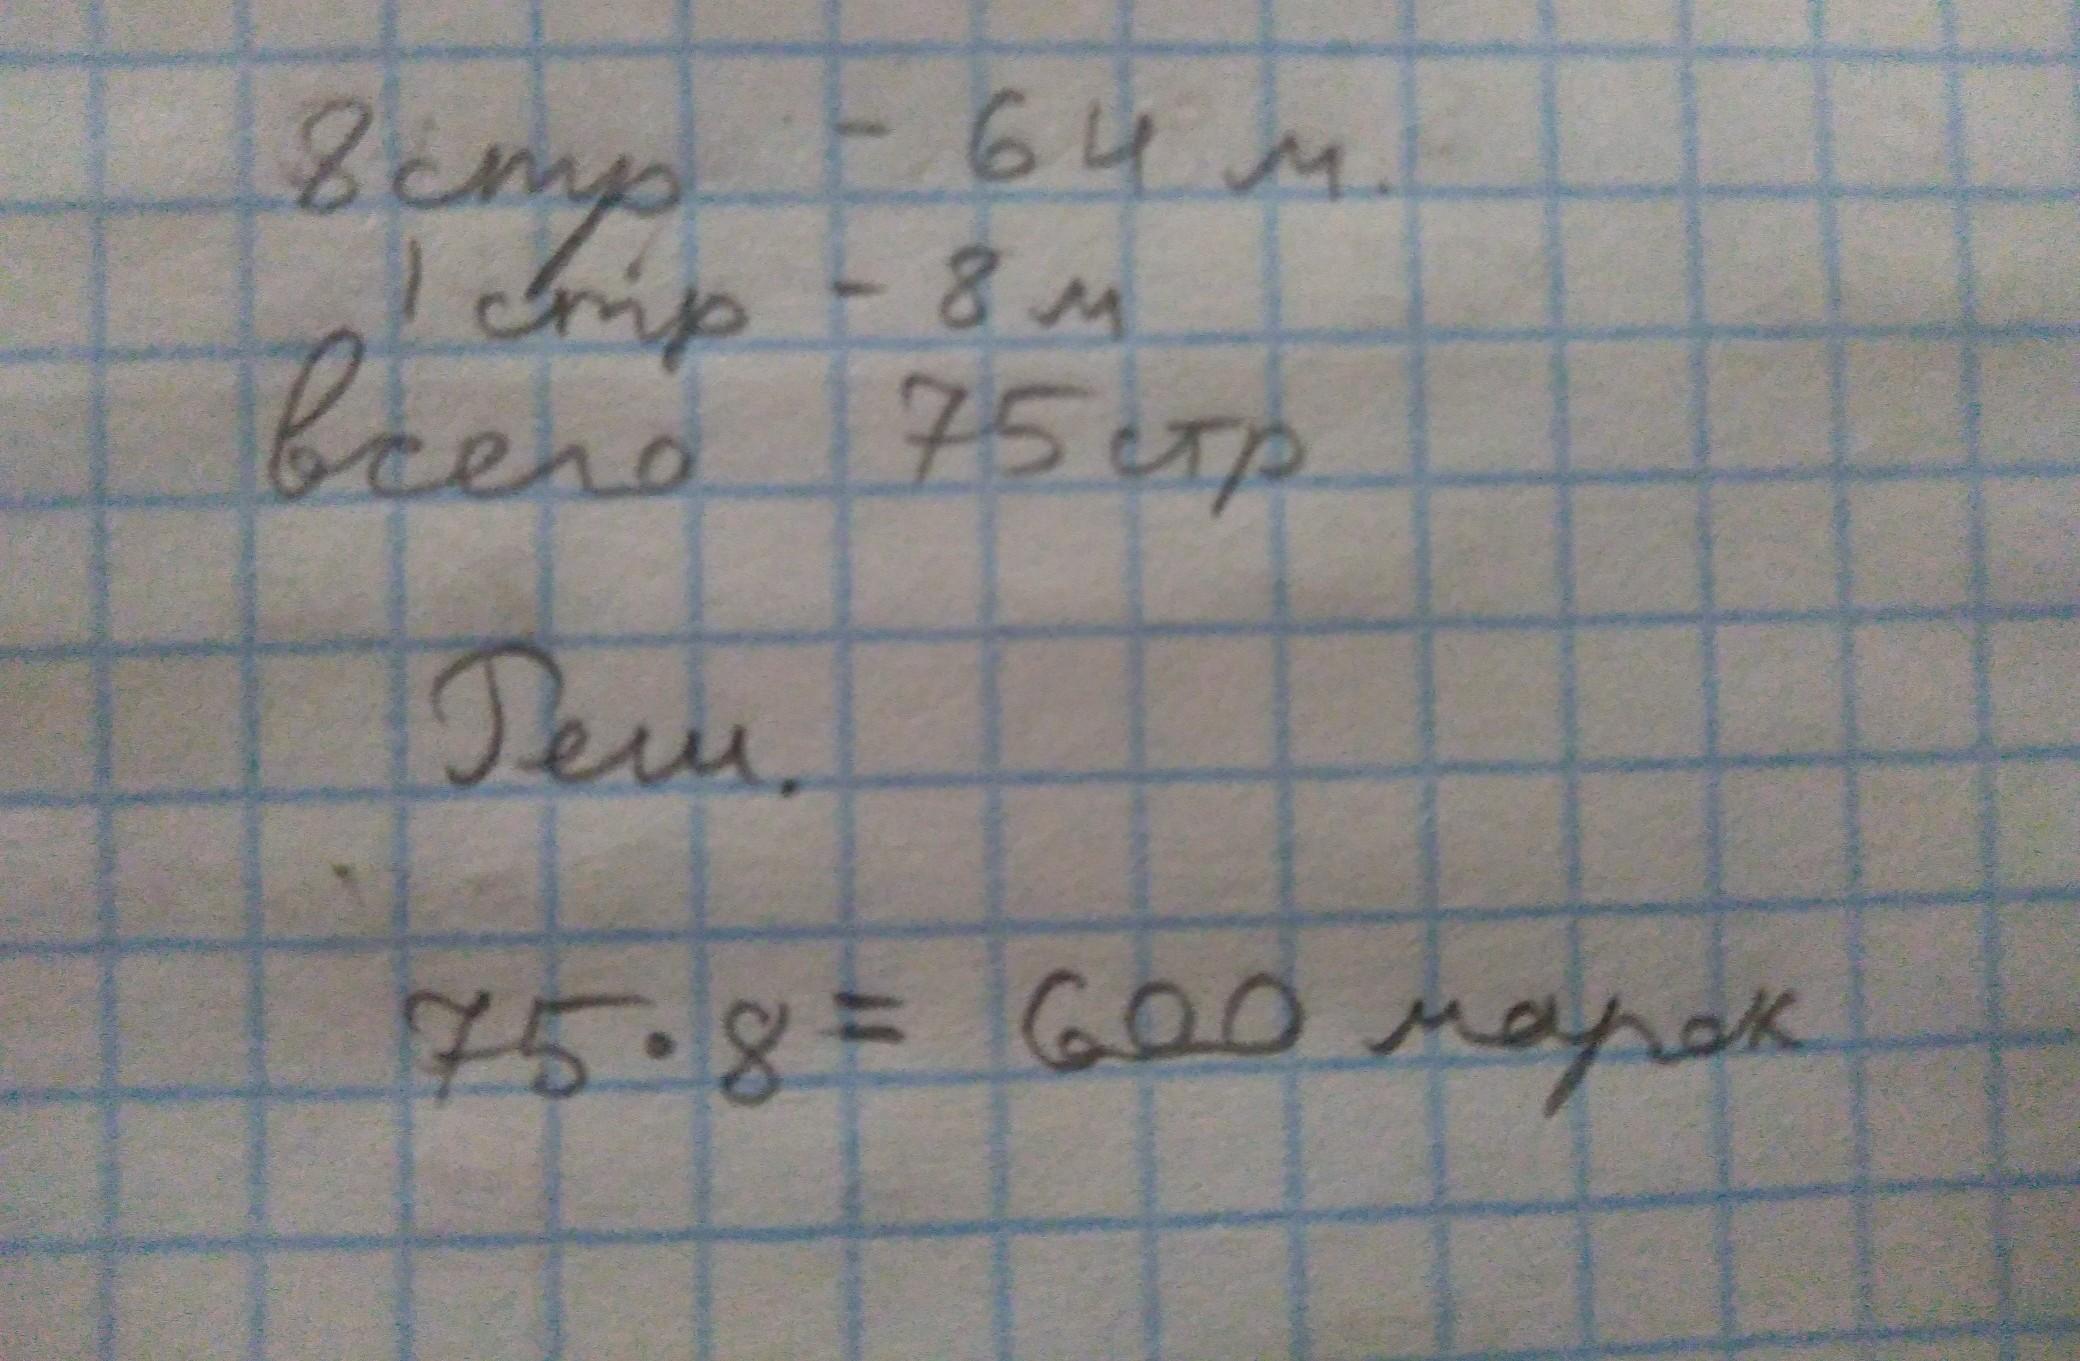 8 стр - 64 м.
1 стр - 8 м
всего 75 стр
Реш.
75 • 8 = 600 марок